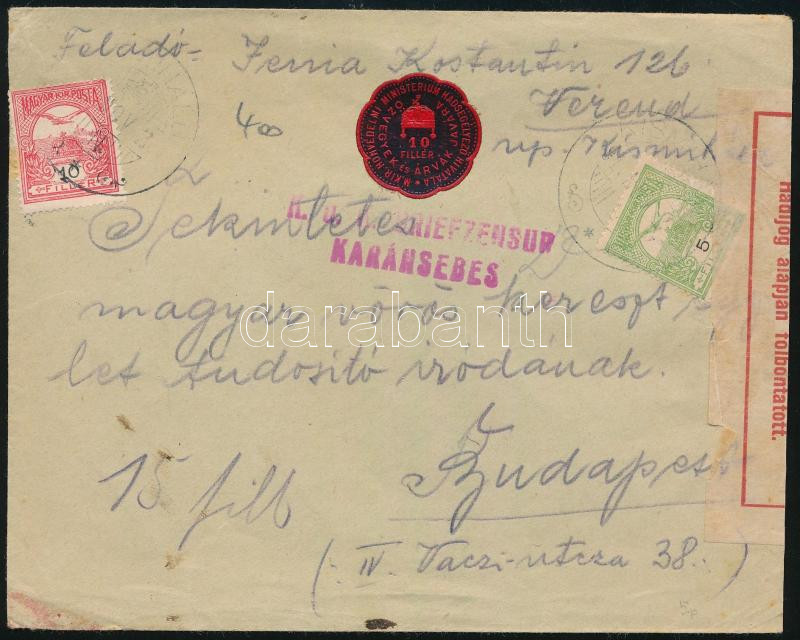 Feladó - Jenia Kostantin 126
400
Verend
up.
MAGYAR KIR. POSTA
10
FILLÉR
M. KIR. HONVÉDELMI MINISTERIUM HADSEGÉLYEZŐ HIVATALA
ÖZVEGYEK ÉS ÁRVÁK JAVÁRA
10
FILLÉR
5
KARÁNSEBES
Tekintetes
magyar vörös kereszt
let tudosító irodának.
Budapest
15 fill
(: IV. Vaczi-utcza 38. :)
Hadijog alapján fölbontatott.
darabanth